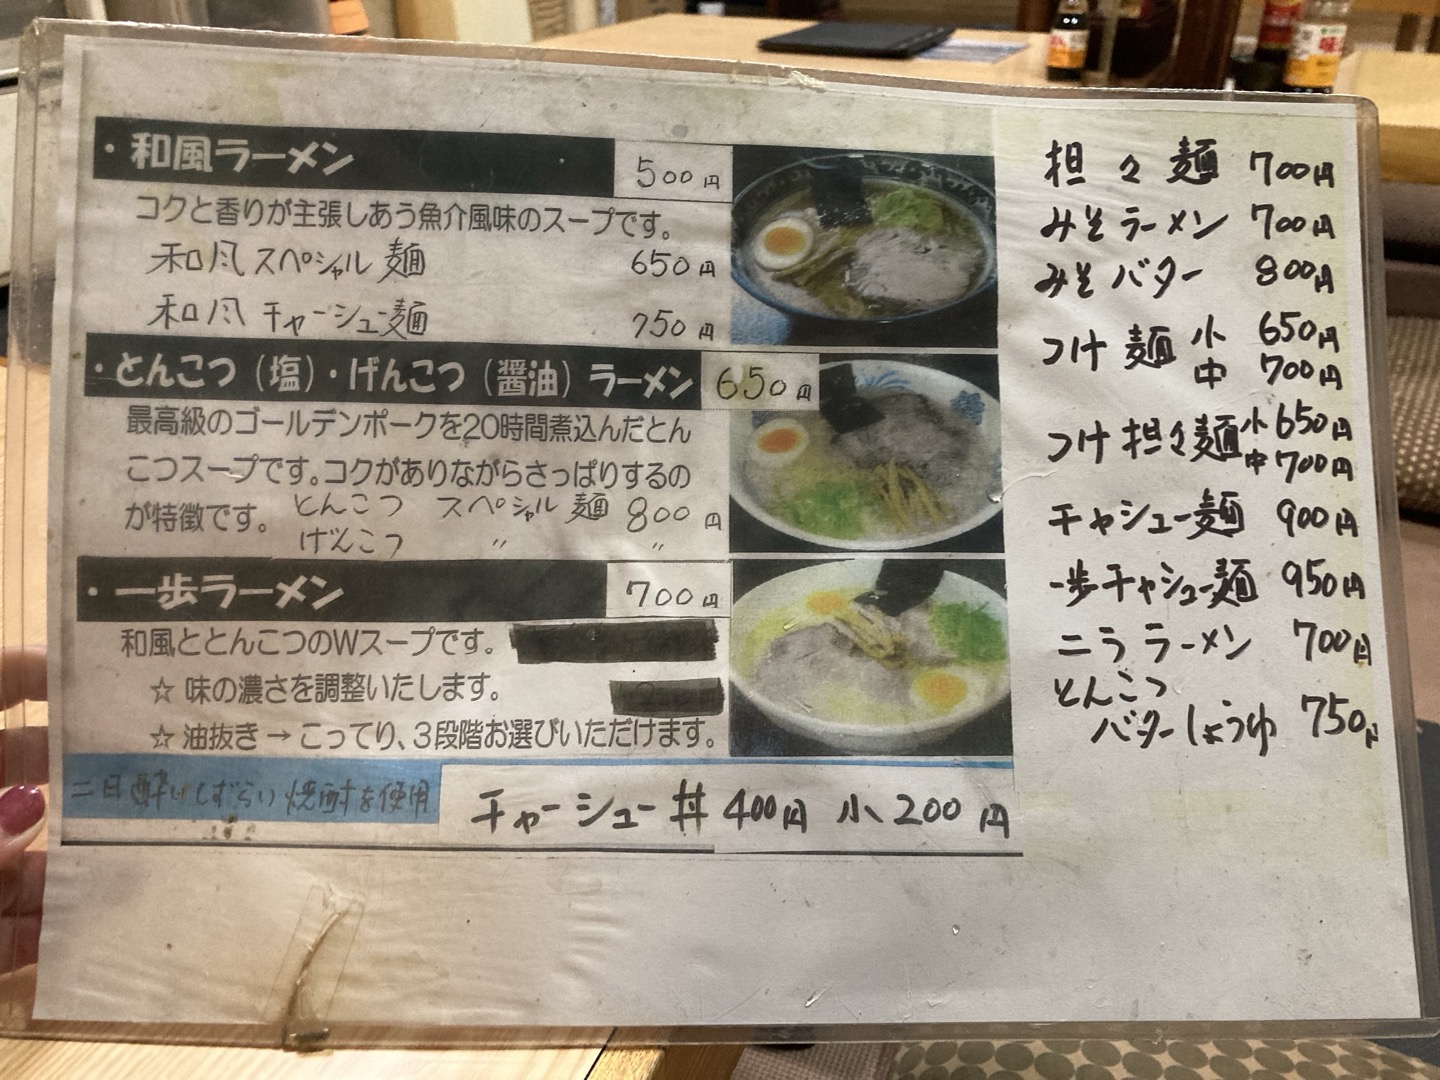 ・和風ラーメン 500円
コクと香りが主張しあう魚介風味のスープです。
和風スペシャル麺 650円
和風チャーシュー麺 750円
・とんこつ（塩）・げんこつ（醤油）ラーメン 650円
最高級のゴールデンポークを20時間煮込んだとん
こつスープです。コクがありながらさっぱりするの
が特徴です。
とんこつ スペシャル麺 800円
げんこつ 〃 〃
・一歩ラーメン 700円
和風ととんこつのWスープです。
☆ 味の濃さを調整いたします。
☆ 油抜き→こってり、3段階お選びいただけます。
二日酔いしずらい焼酎を使用
チャーシュー丼 400円 小 200円
担々麺 700円
みそラーメン 700円
みそバター 800円
つけ麺 小 650円
中 700円
つけ担々麺 小 650円
中 700円
チャシュー麺 900円
一歩チャシュー麺 950円
ニラ ラーメン 700円
とんこつ
バターしょうゆ 750円